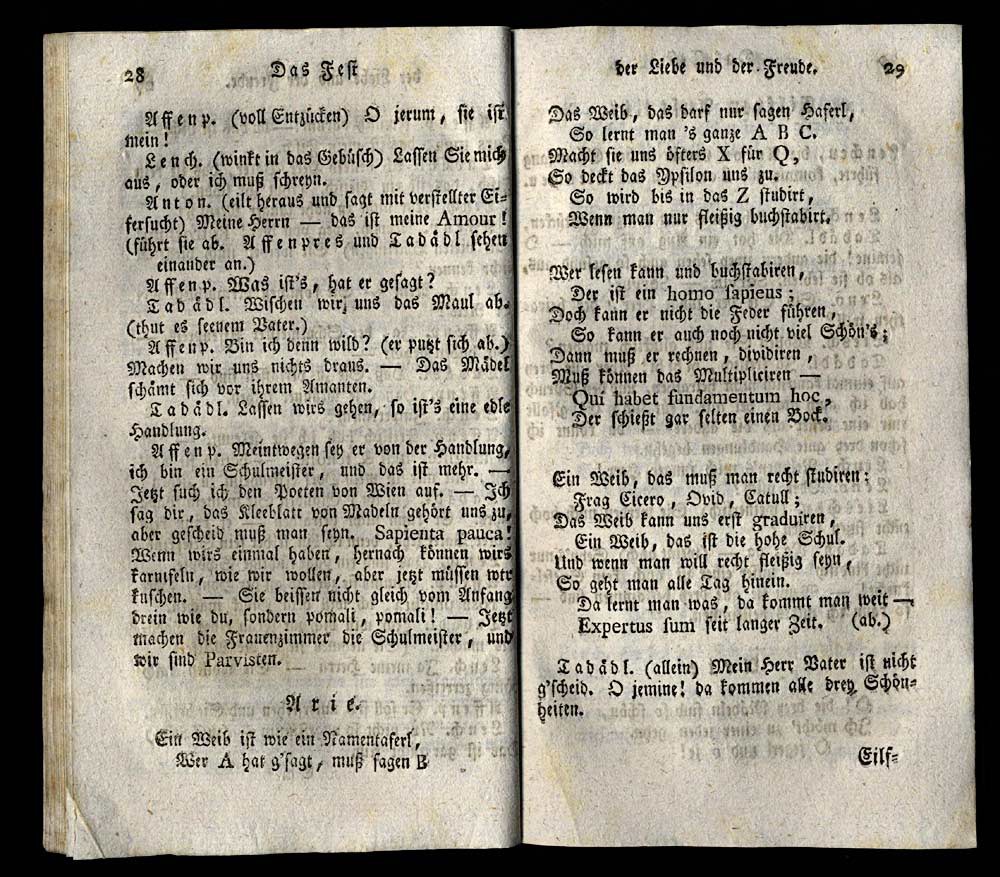 28 Das Fest
Affenp. (voll Entzücken) O jerum, sie ist
mein!
Lench. (winkt in das Gebüsch) Lassen Sie mich
aus, oder ich muß schreyn.
Anton. (eilt heraus und sagt mit verstellter Ei-
fersucht) Meine Herrn — das ist meine Amour!
(führt sie ab. Affenpres und Tadädl sehen
einander an.)
Affenp. Was ist's, hat er gesagt?
Tadädl. Wischen wir uns das Maul ab.
(thut es seenem Vater.)
Affenp. Bin ich denn wild? (er putzt sich ab.)
Machen wir uns nichts draus. — Das Mädel
schämt sich vor ihrem Amanten.
Tadädl. Lassen wirs gehen, so ist's eine edle
Handlung.
Affenp. Meintwegen sey er von der Handlung,
ich bin ein Schulmeister, und das ist mehr. —
Jetzt such ich den Poeten von Wien auf. — Ich
sag dir, das Kleeblatt von Madeln gehört uns zu,
aber gescheid muß man seyn. Sapienta pauca!
Wenn wirs einmal haben, hernach können wirs
karnifeln, wie wir wollen, aber jetzt müssen wir
kuschen. — Sie beissen nicht gleich vom Anfang
drein wie du, sondern pomali, pomali! — Jetzt
machen die Frauenzimmer die Schulmeister, und
wir sind Parvisten.
Arie.
Ein Weib ist wie ein Namentaferl,
Wer A hat g'sagt, muß sagen B
der Liebe und der Freude. 29
Das Weib, das darf nur sagen Haferl,
So lernt man 's ganze A B C.
Macht sie uns öfters X für Q,
So deckt das Ypsilon uns zu.
So wird bis in das Z studirt,
Wenn man nur fleißig buchstabirt.
Wer lesen kann und buchstabiren,
Der ist ein homo sapieus;
Doch kann er nicht die Feder führen,
So kann er auch noch nicht viel Schön's;
Dann muß er rechnen, dividiren,
Muß können das Multipliciren —
Qui habet fundamentum hoc,
Der schießt gar selten einen Bock.
Ein Weib, das muß man recht studiren;
Frag Cicero, Ovid, Catull;
Das Weib kann uns erst graduiren,
Ein Weib, das ist die hohe Schul.
Und wenn man will recht fleißig seyn,
So geht man alle Tag hinein.
Da lernt man was, da kommt man weit —
Expertus sum seit langer Zeit. (ab.)
Tadädl. (allein) Mein Herr Vater ist nicht
g'scheid. O jemine! da kommen alle drey Schön-
heiten.
Eilf-